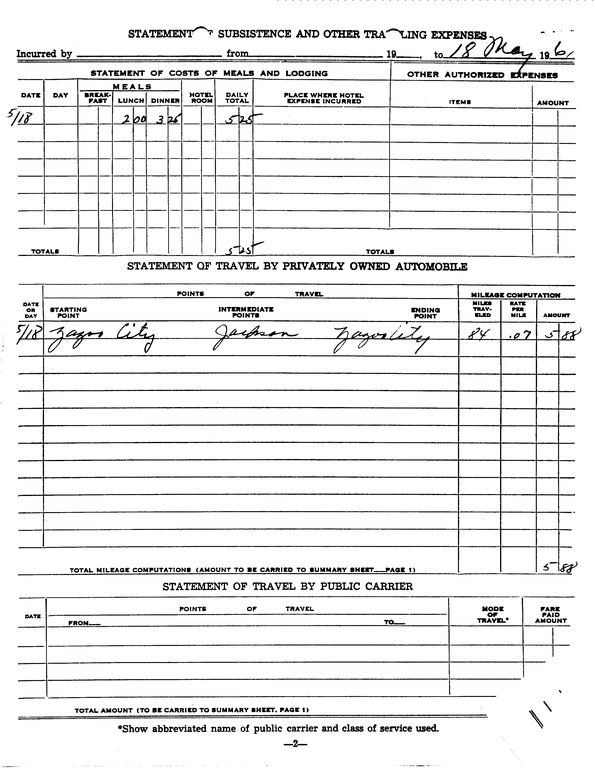 STATEMENT OF SUBSISTENCE AND OTHER TRAVELING EXPENSES
Incurred by from 19 , to 18 May 1961
STATEMENT OF COSTS OF MEALS AND LODGING OTHER AUTHORIZED EXPENSES
DATE DAY MEALS HOTEL ROOM DAILY TOTAL PLACE WHERE HOTEL EXPENSE INCURRED ITEMS AMOUNT
BREAK-FAST LUNCH DINNER
5/18 2 00 3 25 5 25
TOTALS 5 25 TOTALS
STATEMENT OF TRAVEL BY PRIVATELY OWNED AUTOMOBILE
POINTS OF TRAVEL MILEAGE COMPUTATION
DATE OR DAY STARTING POINT INTERMEDIATE POINTS ENDING POINT MILES TRAV-ELED RATE PER MILE AMOUNT
5/18 Yazoo City Jackson Yazoo City 84 .07 5 88
TOTAL MILEAGE COMPUTATIONS (AMOUNT TO BE CARRIED TO SUMMARY SHEET—PAGE 1) 5 88
STATEMENT OF TRAVEL BY PUBLIC CARRIER
DATE POINTS OF TRAVEL MODE OF TRAVEL* FARE PAID AMOUNT
FROM— TO—
TOTAL AMOUNT (TO BE CARRIED TO SUMMARY SHEET, PAGE 1)
*Show abbreviated name of public carrier and class of service used.
—2—